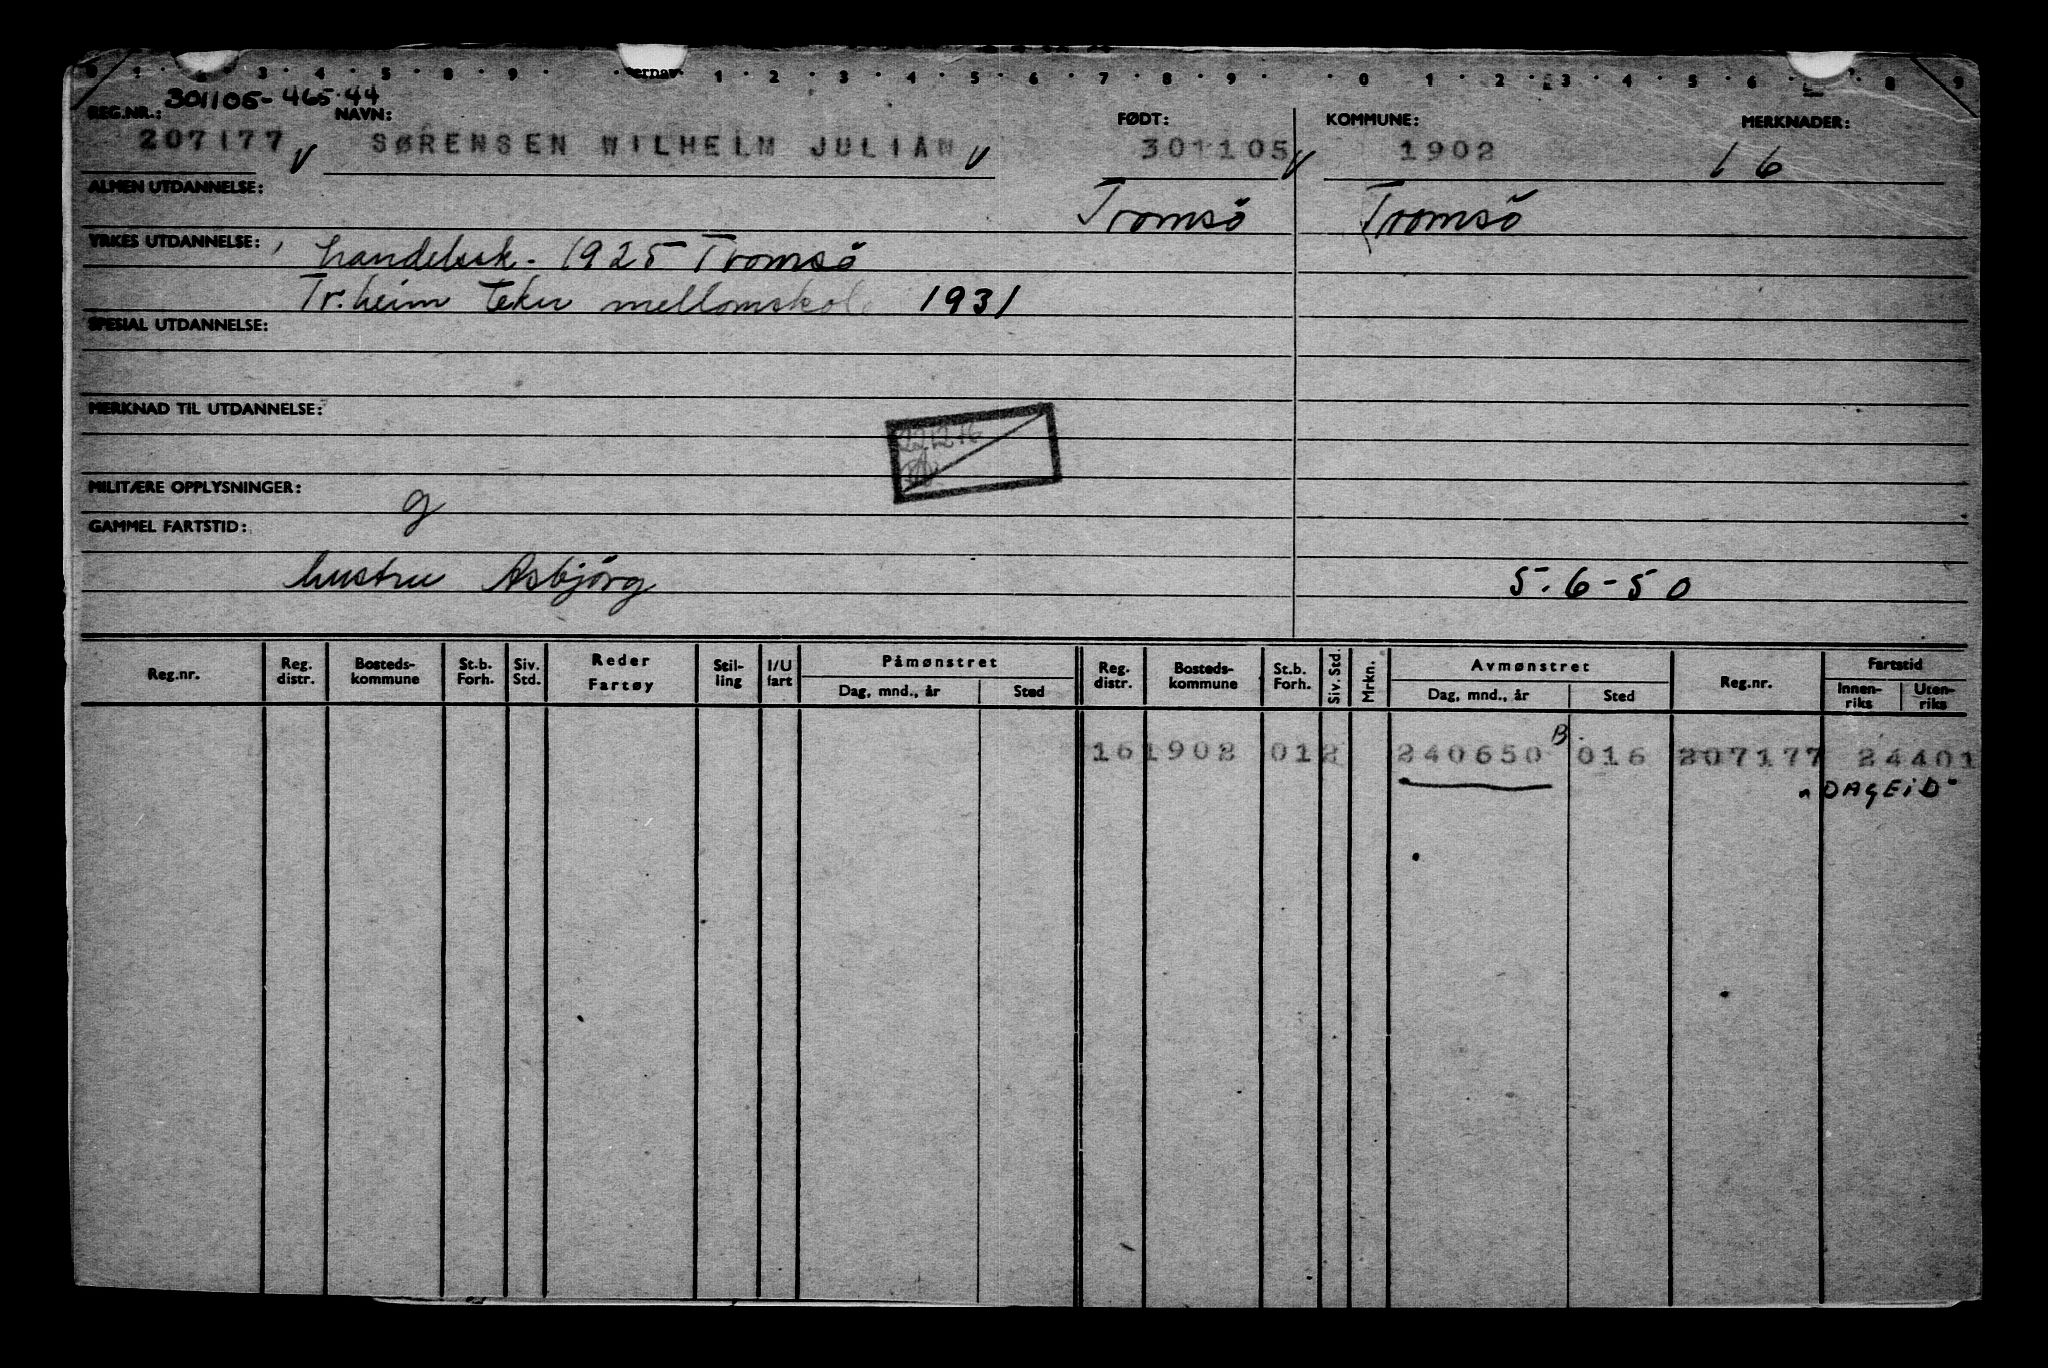 0 1 2 3 4 5 8 9 1 2 3 4 5 6 7 8 9 0 1 2 3 4 5 6 7 8 9
301105-465.44
REG.NR.: NAVN: FØDT: KOMMUNE: MERKNADER:
207177 V SØRENSEN WILHELM JULIAN V 301105 V 1902 16
ALMEN UTDANNELSE: Tromsö Tromsö
YRKES UTDANNELSE: handelssk. 1925 Tromsö
Tr.heim tekn mellomskol 1931
SPESIAL UTDANNELSE:
MERKNAD TIL UTDANNELSE:
221216
MILITÆRE OPPLYSNINGER: g
GAMMEL FARTSTID:
hustru Asbjörg 5.6-50
Reg.nr. Reg. distr. Bosteds-kommune St.b. Forh. Siv. Std. Reder Fartøy Stil-ling I/U fart Påmønstret Dag, mnd., år Sted Reg. distr. Bosteds-kommune St.b. Forh. Siv. Std. Mrkn. Avmønstret Dag, mnd., år Sted Reg.nr. Fartstid Innen-riks Uten-riks
16 1902 012 240650 B. 016 207177 24401
"DAGEID"